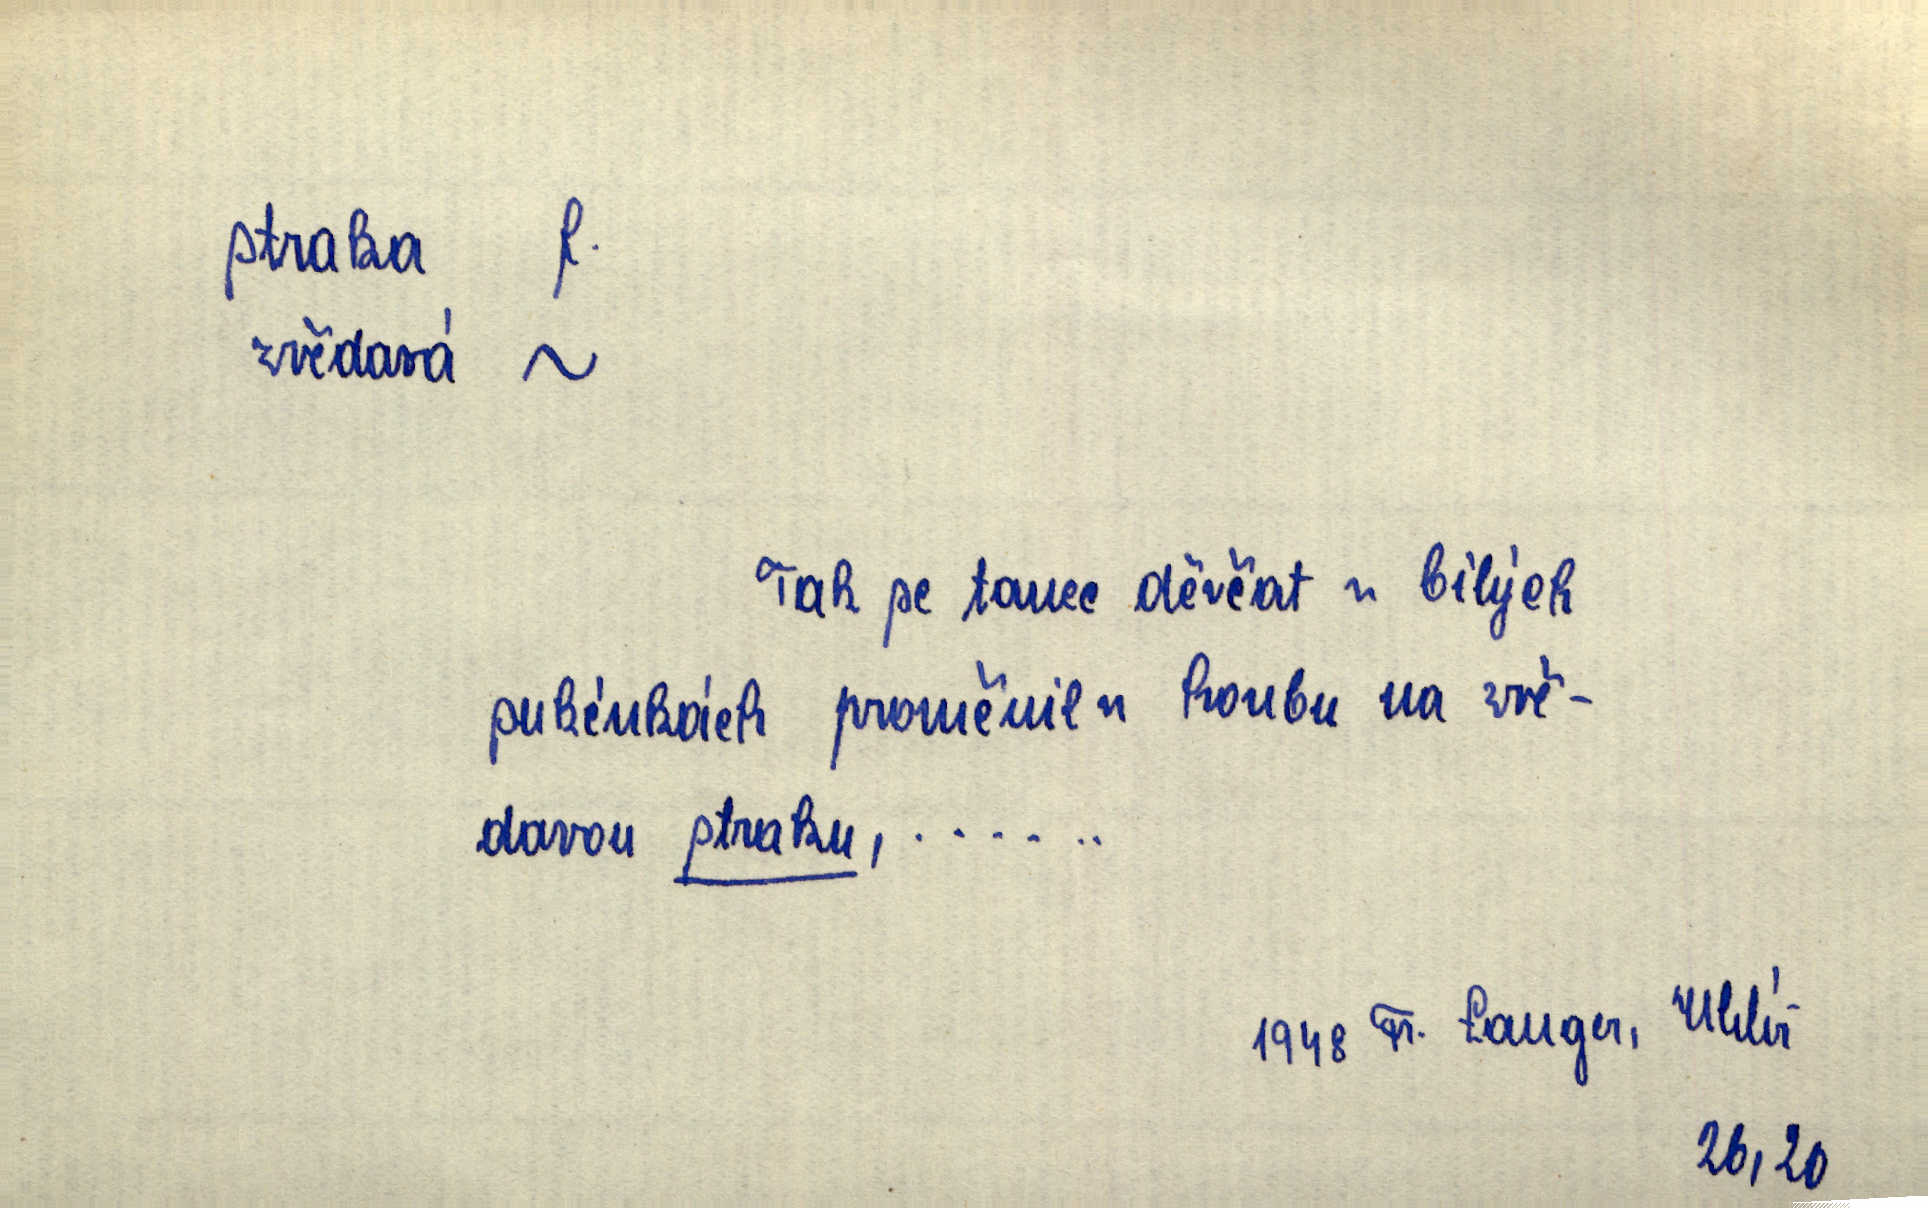 straka f.
zvědavá ~
Tak se tanec děvčat v bílých
sukénkách proměnil v honbu na zvě-
davou straku, .......
1948 Fr. Langer,
26, 20